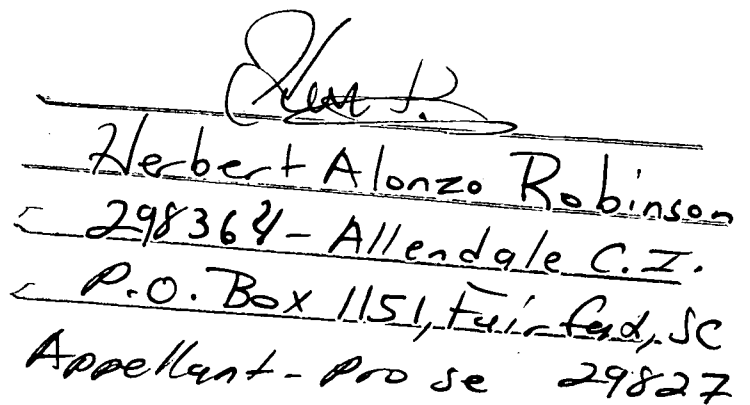 Herbert Alonzo Robinson
298364 - Allendale C.I.
P.O. Box 1151, Fairfax, SC
Appellant - pro se 29827